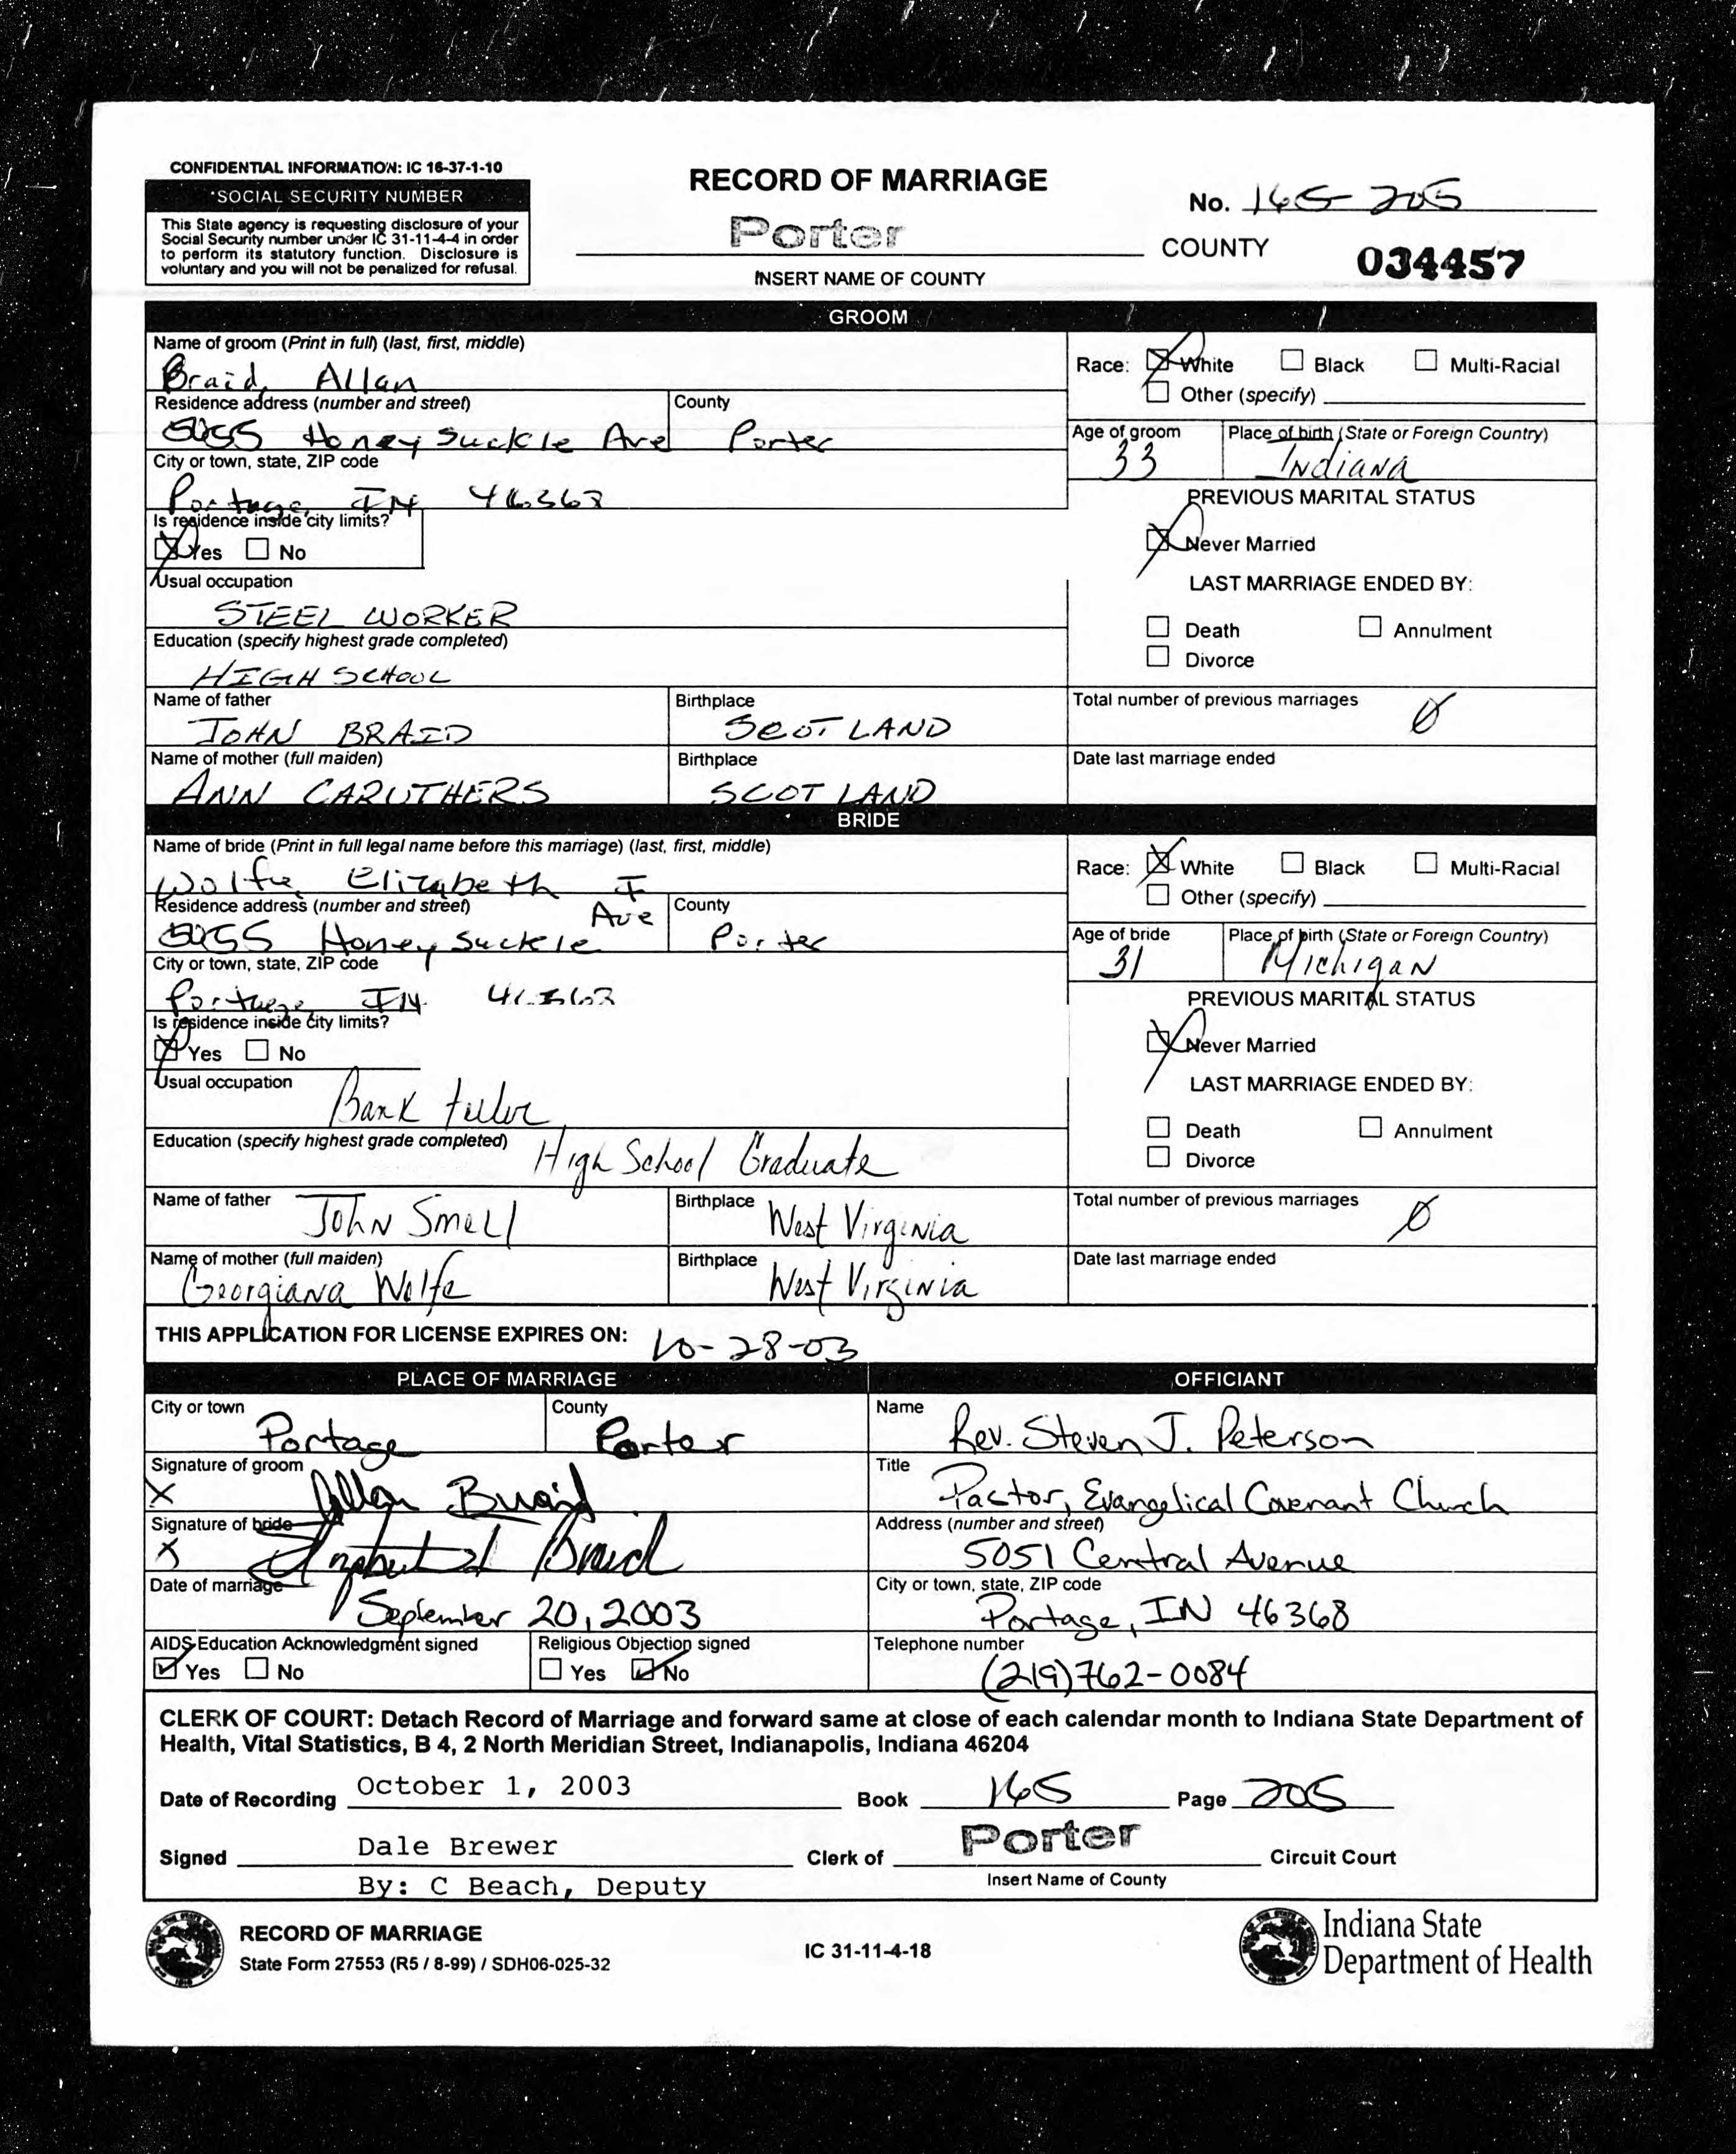 CONFIDENTIAL INFORMATION: IC 16-37-1-10
*SOCIAL SECURITY NUMBER
This State agency is requesting disclosure of your
Social Security number under IC 31-11-4-4 in order
to perform its statutory function. Disclosure is
voluntary and you will not be penalized for refusal.
RECORD OF MARRIAGE
No. 165-205
Porter COUNTY
INSERT NAME OF COUNTY
034457
GROOM
Name of groom (Print in full) (last, first, middle)
Braid, Allan
Race: White Black Multi-Racial
Other (specify)
Residence address (number and street) County
Honeysuckle Ave Porter
Age of groom Place of birth (State or Foreign Country)
33 Indiana
City or town, state, ZIP code
Portage, IN 46368
Is residence inside city limits?
Yes No
PREVIOUS MARITAL STATUS
Never Married
Usual occupation
STEEL WORKER
LAST MARRIAGE ENDED BY:
Death Annulment
Divorce
Education (specify highest grade completed)
HIGH SCHOOL
Name of father Birthplace Total number of previous marriages
JOHN BRAID SCOTLAND 0
Name of mother (full maiden) Birthplace Date last marriage ended
ANN CARUTHERS SCOTLAND
BRIDE
Name of bride (Print in full legal name before this marriage) (last, first, middle)
Wolfe, Elizabeth I
Race: White Black Multi-Racial
Other (specify)
Residence address (number and street) County
Honeysuckle Ave Porter
Age of bride Place of birth (State or Foreign Country)
31 Michigan
City or town, state, ZIP code
Portage, IN 46368
Is residence inside city limits?
Yes No
PREVIOUS MARITAL STATUS
Never Married
Usual occupation Bank teller
LAST MARRIAGE ENDED BY:
Death Annulment
Divorce
Education (specify highest grade completed) High School Graduate
Name of father John Smell Birthplace West Virginia Total number of previous marriages 0
Name of mother (full maiden) Birthplace Date last marriage ended
Georgiana Wolfe West Virginia
THIS APPLICATION FOR LICENSE EXPIRES ON: 10-28-03
PLACE OF MARRIAGE OFFICIANT
City or town County Name
Portage Porter Rev. Steven J. Peterson
Signature of groom Title
X Allan Braid Pastor, Evangelical Covenant Church
Signature of bride Address (number and street)
X Elizabeth I Braid 5051 Central Avenue
Date of marriage City or town, state, ZIP code
September 20, 2003 Portage, IN 46368
AIDS Education Acknowledgment signed Religious Objection signed Telephone number
Yes No Yes No (219)762-0084
CLERK OF COURT: Detach Record of Marriage and forward same at close of each calendar month to Indiana State Department of
Health, Vital Statistics, B 4, 2 North Meridian Street, Indianapolis, Indiana 46204
Date of Recording October 1, 2003 Book 165 Page 205
Signed Dale Brewer Clerk of Porter Circuit Court
By: C Beach, Deputy Insert Name of County
RECORD OF MARRIAGE
State Form 27553 (R5 / 8-99) / SDH06-025-32
IC 31-11-4-18
Indiana State
Department of Health